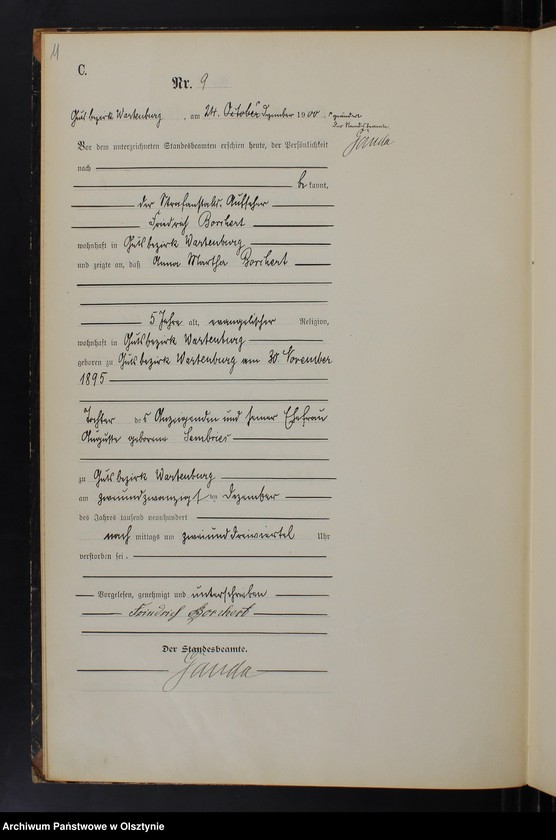 11
C.
Nr. 9
Gutsbezirk Wartenburg, am 24. October Dezember 1900. geändert
Der Standesbeamte
Janda
Vor dem unterzeichneten Standesbeamten erschien heute, der Persönlichkeit
nach
be kannt,
der Strafanstalts-Aufseher
Friedrich Borchert
wohnhaft in Gutsbezirk Wartenburg
und zeigte an, daß Anna Martha Borchert
5 Jahre alt, evangelischer Religion,
wohnhaft in Gutsbezirk Wartenburg
geboren zu Gutsbezirk Wartenburg am 30. November
1895
Tochter des Anzeigenden und seiner Ehefrau
Auguste geborene
zu Gutsbezirk Wartenburg
am zweiundzwanzigsten Dezember
des Jahres tausend neunhundert
nach mittags um zweiunddreiviertel Uhr
verstorben sei.
Vorgelesen, genehmigt und unterschrieben
Friedrich Borchert
Der Standesbeamte.
Janda
Archiwum Państwowe w Olsztynie